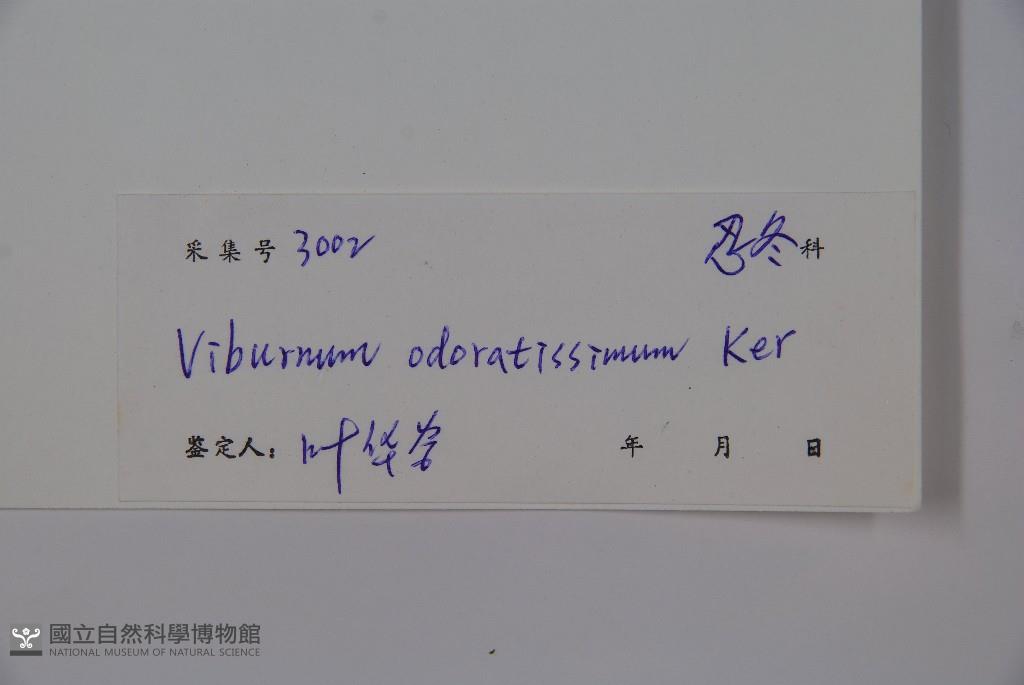 采集号 3002 忍冬科
Viburnum odoratissimum Ker
鉴定人: 叶华谷 年 月 日
國立自然科學博物館
NATIONAL MUSEUM OF NATURAL SCIENCE